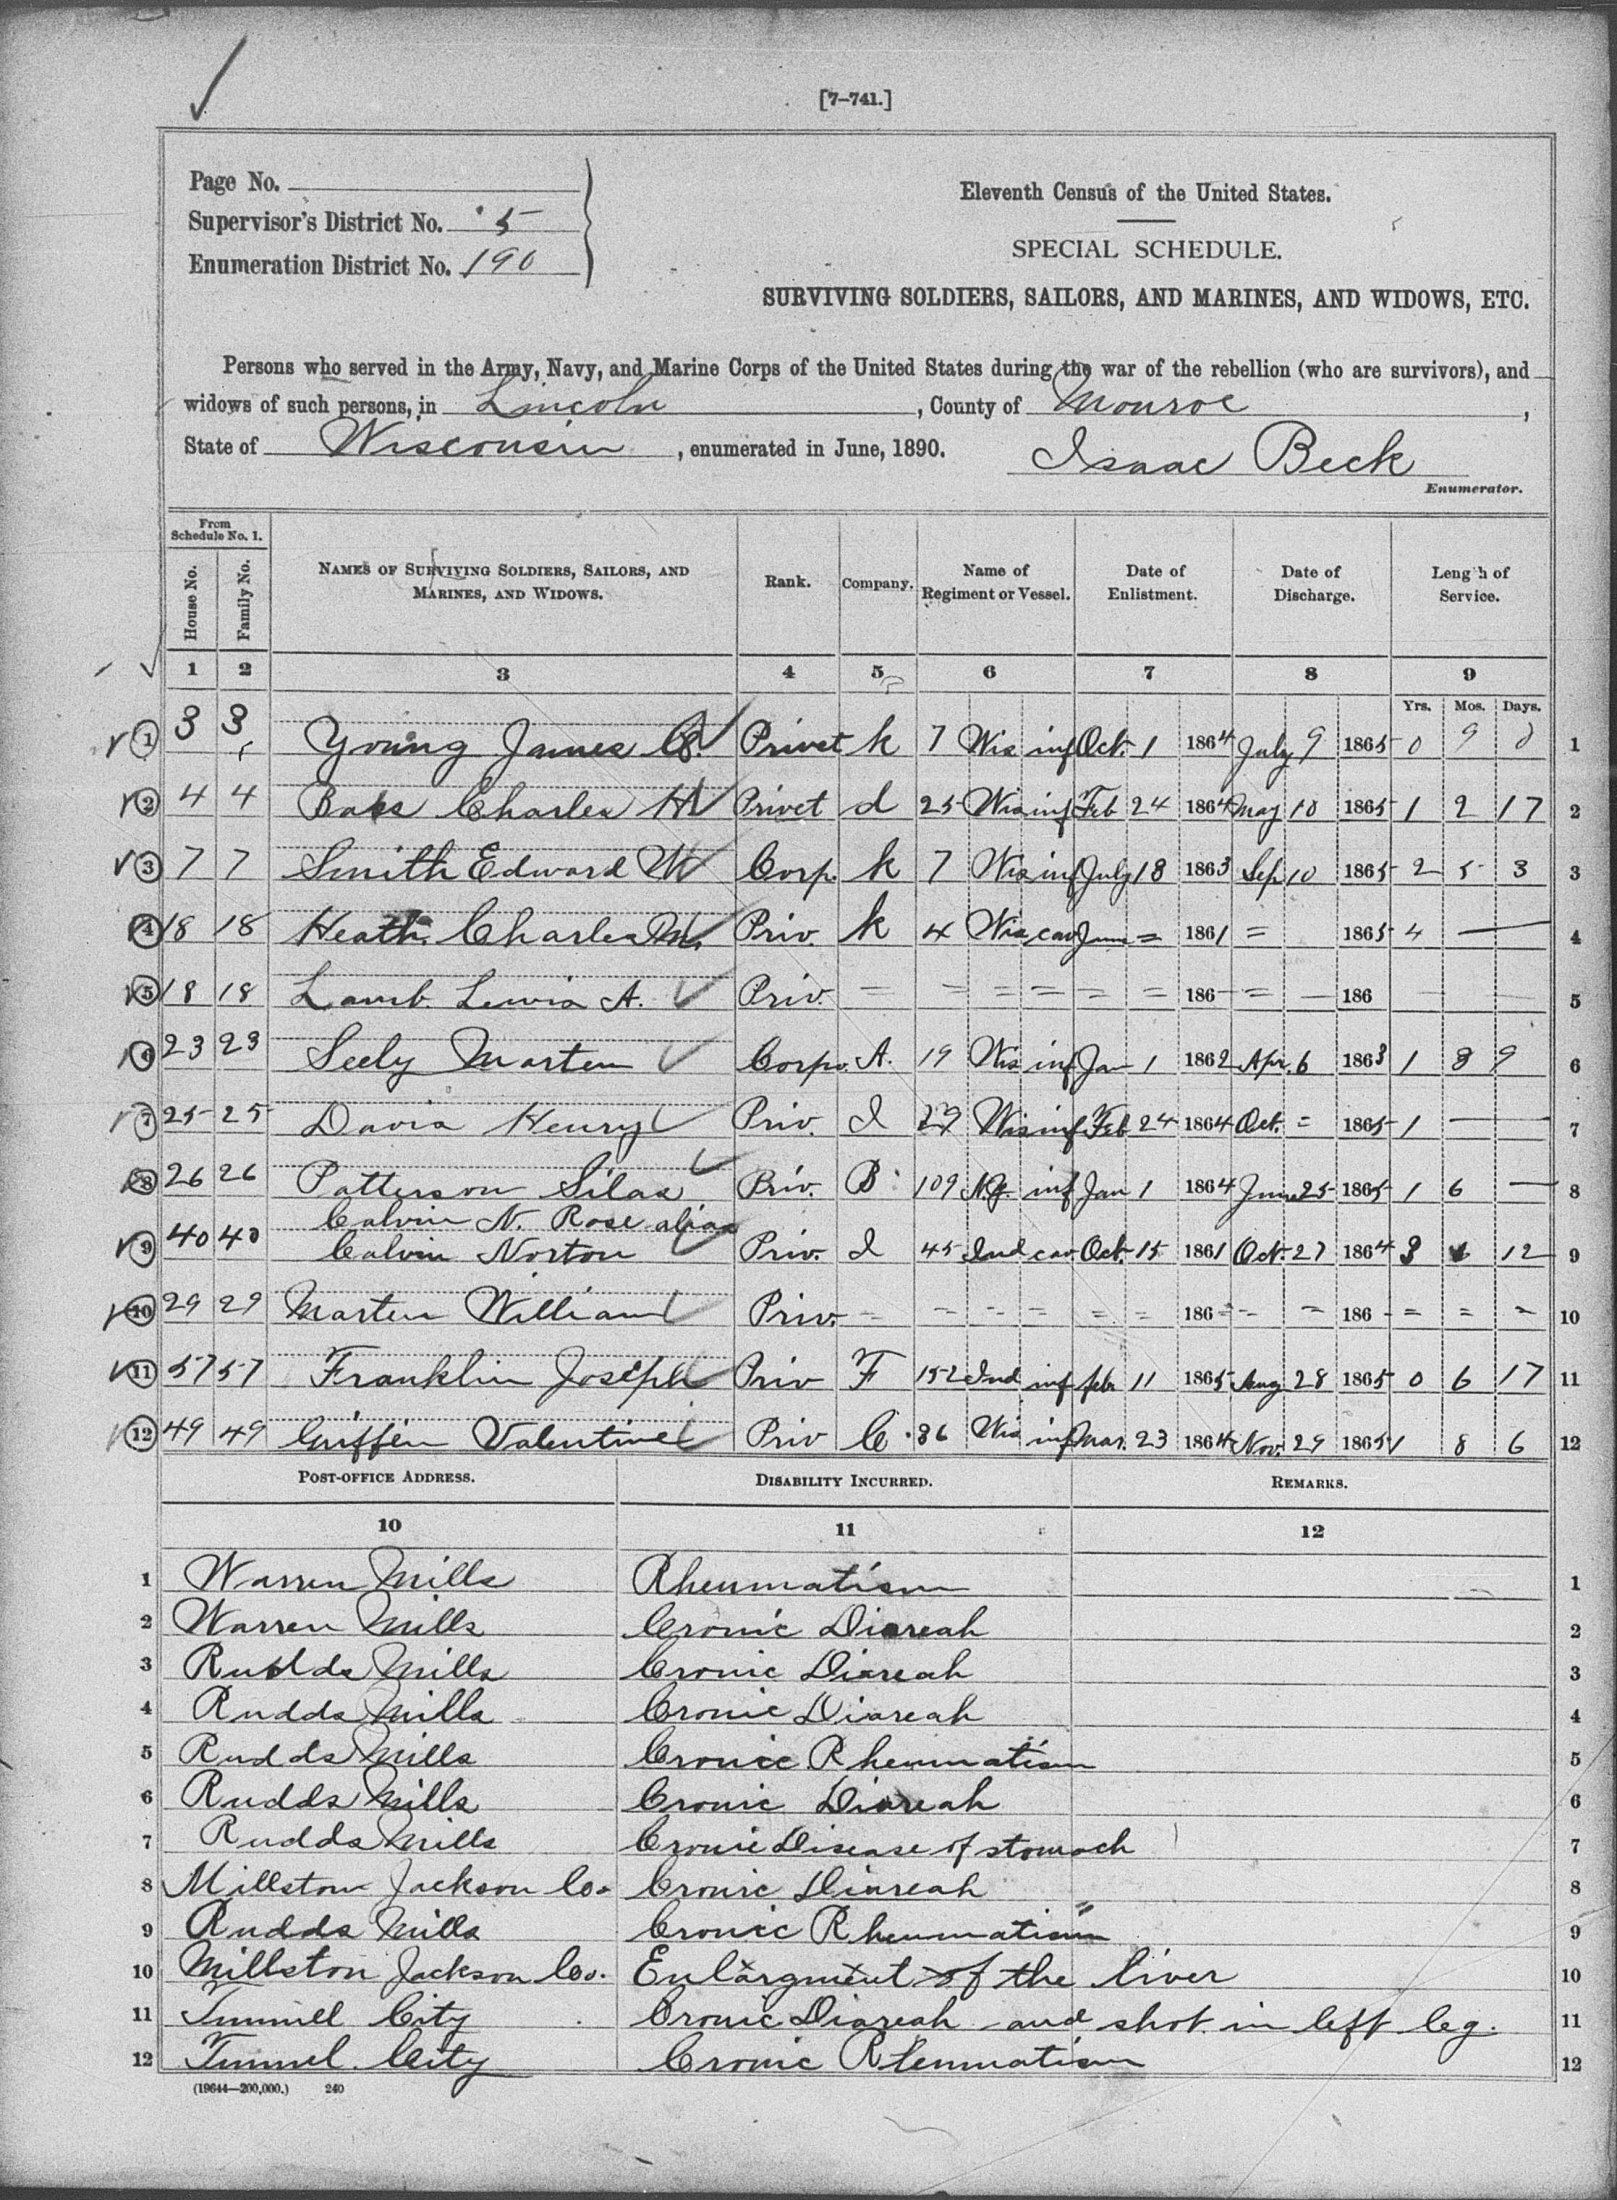 [7-741.]
Page No.
Supervisor's District No. 5
Enumeration District No. 190
Eleventh Census of the United States.
SPECIAL SCHEDULE.
SURVIVING SOLDIERS, SAILORS, AND MARINES, AND WIDOWS, ETC.
Persons who served in the Army, Navy, and Marine Corps of the United States during the war of the rebellion (who are survivors), and
widows of such persons, in Lincoln, County of Monroe,
State of Wisconsin, enumerated in June, 1890. Isaac Beck
Enumerator.
From Schedule No. 1. House No. Family No. NAMES OF SURVIVING SOLDIERS, SAILORS, AND MARINES, AND WIDOWS. Rank. Company. Name of Regiment or Vessel. Date of Enlistment. Date of Discharge. Length of Service.
1 2 3 4 5 6 7 8 9
Yrs. Mos. Days.
1 3 3 Young James Privet k 7 Wis inf Oct. 1 1864 July 9 1865 0 9 0 1
2 4 4 Charles H Privet d 25 Wis inf Feb 24 1864 May 10 1865 1 2 17 2
3 7 7 Smith Edward W Corp. k 7 Wis inf July 18 1863 Sep 10 1865 2 5 3 3
4 18 18 Heath Charles M. Priv. k 4 Wis cav June = 1861 = 1865 4 — 4
5 18 18 Lamb Lewis A. Priv. = = = = = = 186 = — 186 — — 5
6 23 23 Seely Marten Corp. A. 19 Wis inf Jan 1 1862 Apr. 6 1863 1 3 9 6
7 25 25 Davis Henry Priv. I Wis inf Feb 24 1864 Oct. = 1865 1 — — 7
8 26 26 Patterson Silas Priv. B 109 N.y. inf Jan 1 1864 June 25 1865 1 6 — 8
Calvin N. Rose alias
9 40 40 Calvin Norton Priv. I 45 Ind cav. Oct. 15 1861 Oct. 27 1864 3 12 9
10 29 29 Marten William Priv. = = = = = = 186 = = 186 = = = 10
11 57 57 Franklin Joseph Priv F 152 Ind inf feb 11 1865 Aug 28 1865 0 6 17 11
12 49 49 Griffen Valentine Priv C 36 Wis inf Mar. 23 1864 Nov. 29 1865 1 8 6 12
POST-OFFICE ADDRESS. DISABILITY INCURRED. REMARKS.
10 11 12
1 Warren Mills Rheumatism 1
2 Warren Mills Cronic Diareah 2
3 Rudds Mills Cronic Diareah 3
4 Rudds Mills Cronic Diareah 4
5 Rudds Mills Cronic Rheumatism 5
6 Rudds Mills Cronic Diareah 6
7 Rudds Mills Cronic Disease of stomach 7
8 Millston Jackson Co. Cronic Diareah 8
9 Rudds Mills Cronic Rheumatism 9
10 Millston Jackson Co. Enlargment of the liver 10
11 Tunnell City Cronic Diareah and shot in left leg. 11
12 Tunnel City Cronic Rhenmatism 12
(19644—200,000.) 240